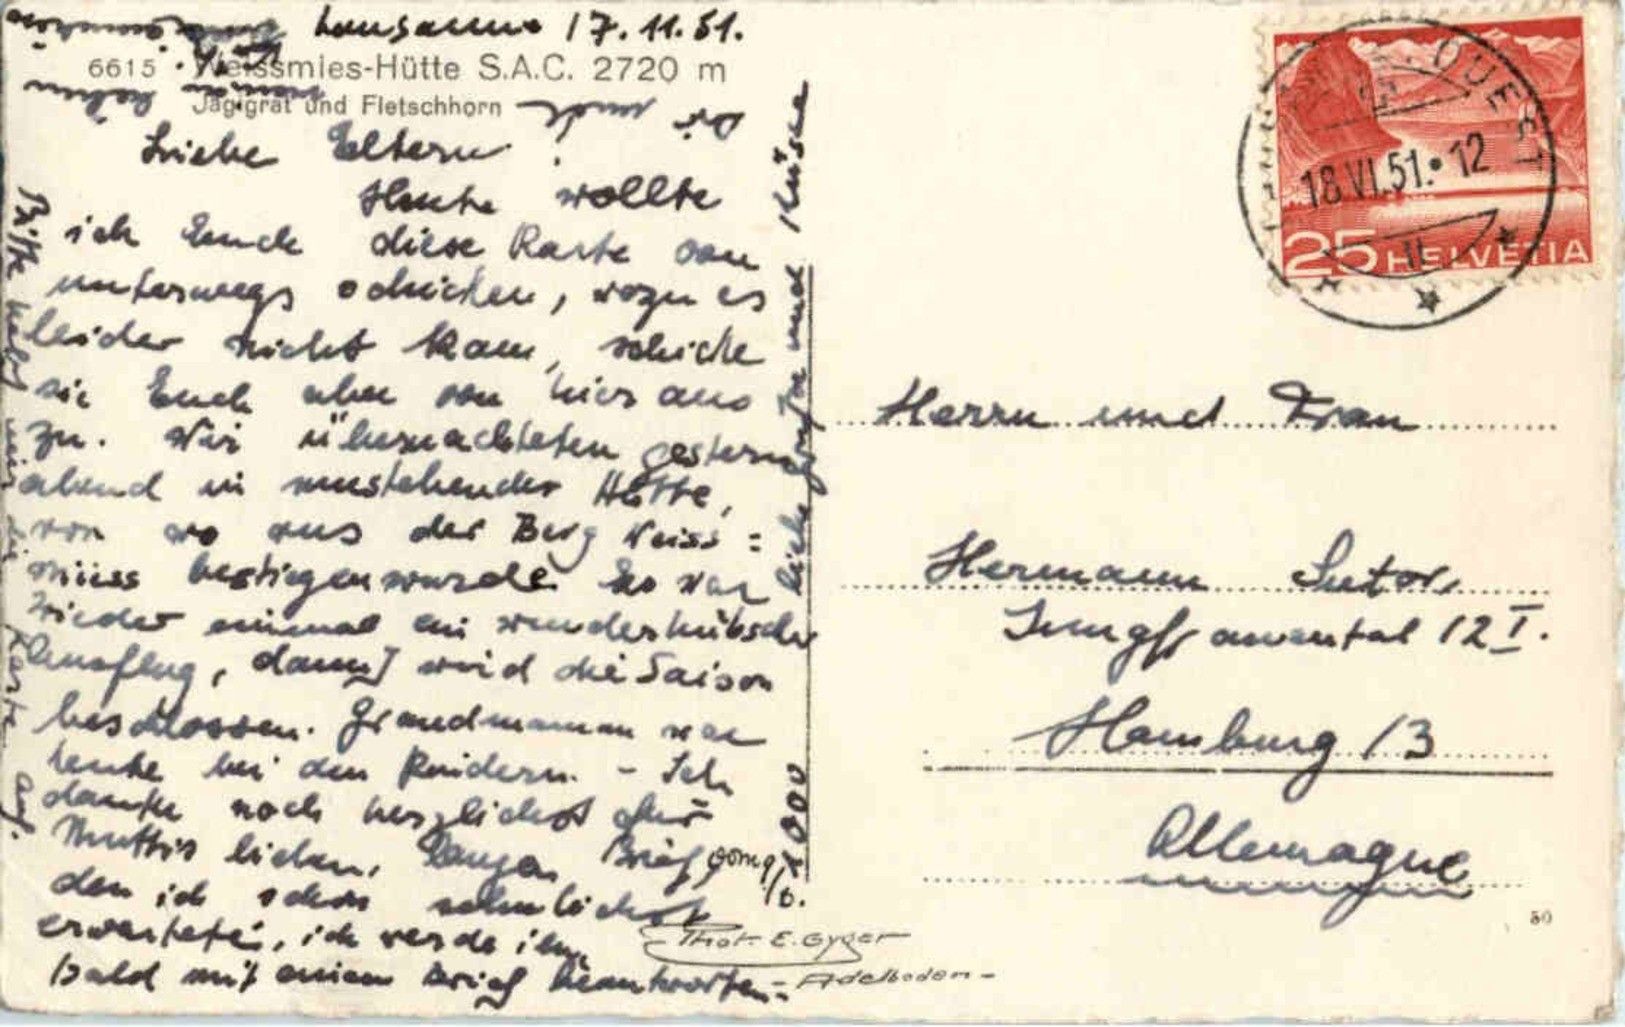 Lausanne 17.11.51.
6615 · Weissmies-Hütte S.A.C. 2720 m
Jägigrat und Fletschhorn
Liebe Eltern!
Heute wollte
ich Euch diese Karte von
unterwegs schicken, wozu es
leider nicht kam, schicke
sie Euch aber von hier aus
zu. Wir übernachteten gestern
abend in umstehender Hütte,
von wo aus der Berg Weiss=
miess bestiegen wurde. Es war
wieder einmal ein wunderhübscher
Ausflug, damit wird die Saison
beschlossen. Grandmaman war
heute bei den Kindern. - Ich
danke noch herzlichst für
Muttis lieben, langen Brief vom 9/6.
den ich schon sehnlichst
erwartete, ich werde ihn
bald mit einem Brief beantworten.-
1000 liebe und Küsse
Bitte hebt mir die Karte auf.
Phot. E. Gyger
Adelboden
OUEST
18.VI.51.•12
II
25 HELVETIA
Herrn und Frau
Hermann Sutor,
Jungfrauental 12 I.
Hamburg 13
Allemagne
50